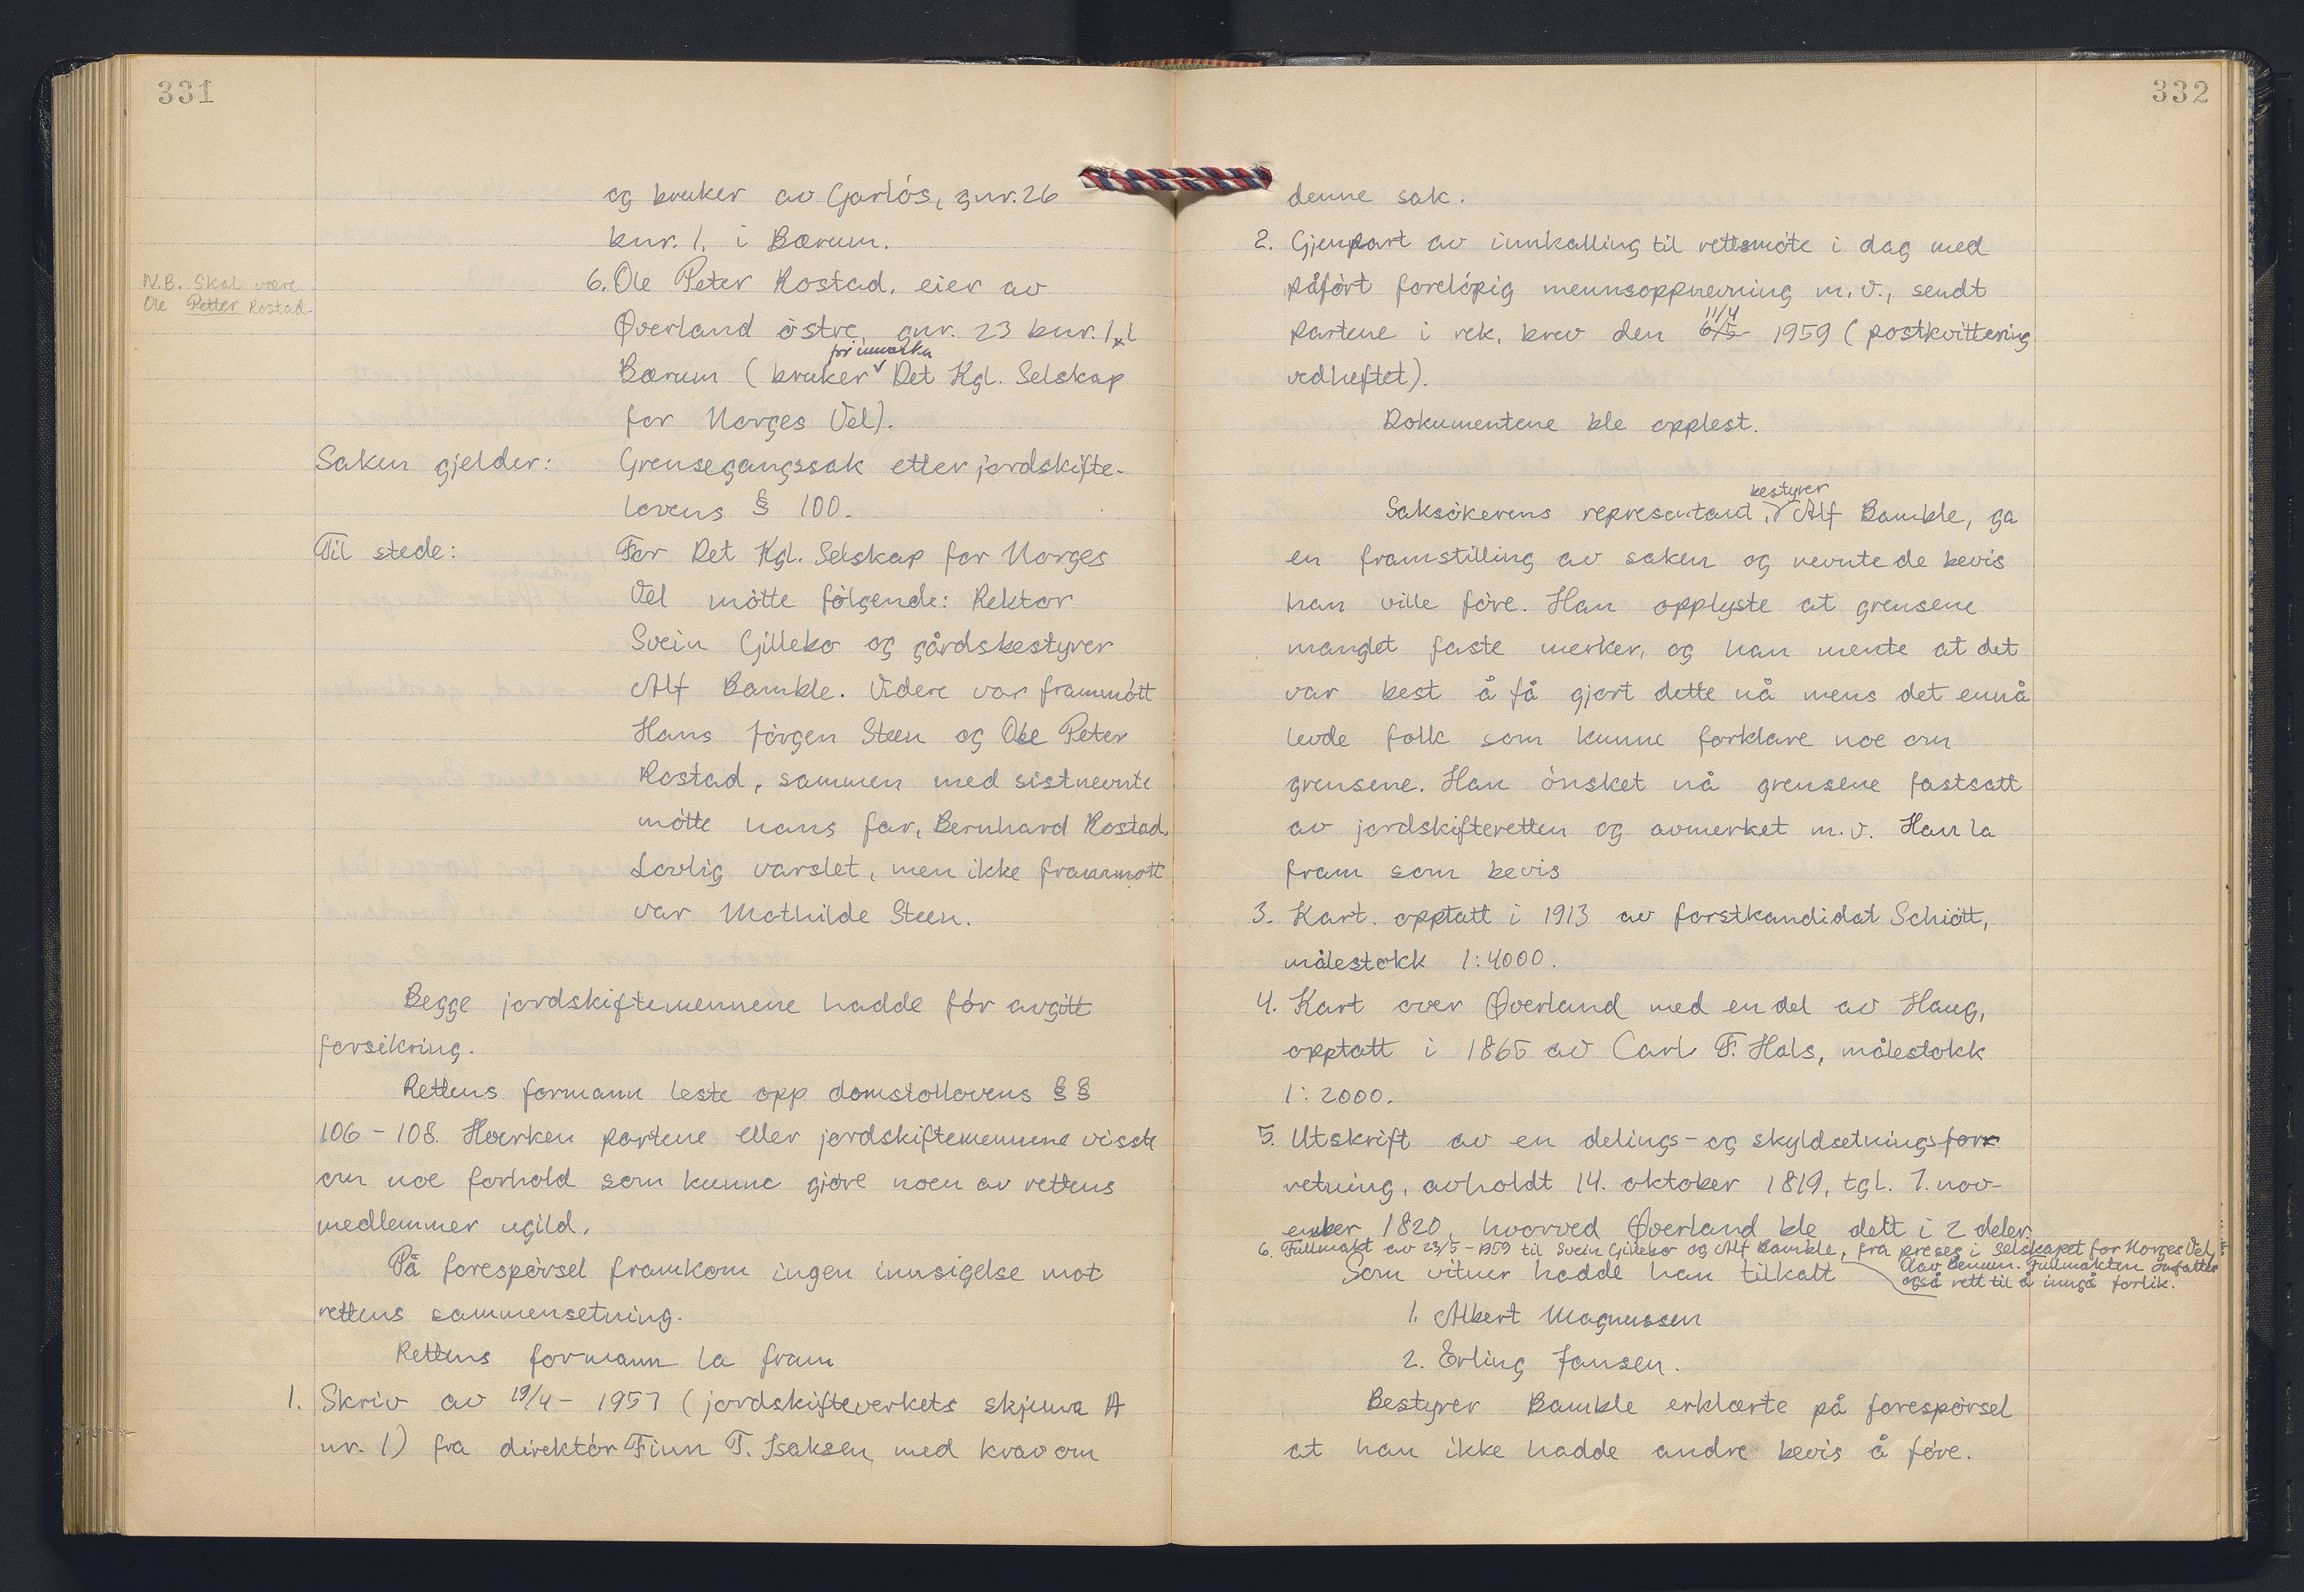 331
og bruker av Garløs, gnr. 26
bnr. 1, i Bærum.
N.B. Skal være
Ole Petter Rostad.
6. Ole Peter Rostad, eier av
Øverland østre, gnr. 23 bnr. 1, i
for innmarka
Bærum (bruker Det Kgl. Selskap
for Norges Vel).
Saken gjelder: Grensegangssak etter jordskifte-
lovens § 100.
Til stede: For Det Kgl. Selskap for Norges
Vel møtte følgende: Rektor
Svein Gillebo og gårdsbestyrer
Alf Bamble. Videre var frammøtt
Hans Jörgen Steen og Ole Peter
Rostad, sammen med sistnevnte
møtte hans far, Bernhard Rostad.
Lovlig varslet, men ikke frammøtt
var Mathilde Steen.
Begge jordskiftemennene hadde før avgitt
forsikring.
Rettens formann leste opp domstollovens § §
106 - 108. Hverken partene eller jordskiftemennene visste
om noe forhold som kunne gjøre noen av rettens
medlemmer ugild.
På forespørsel framkom ingen innsigelse mot
rettens sammensetning.
Rettens formann la fram
1. Skriv av 19/4 - 1957 (jordskifteverkets skjema A
nr. 1) fra direktör Finn T. Isaksen med krav om
332
denne sak.
2. Gjenpart av innkalling til rettsmøte i dag med
påført foreløpig mennsoppnevning m.v., sendt
11/4
partene i rek. brev den 6/5- 1959 (postkvittering
vedheftet).
Dokumentene ble opplest.
bestyrer
Saksøkerens representant, Alf Bamble, ga
en framstilling av saken og nevnte de bevis
han ville føre. Han opplyste at grensene
manglet faste merker, og han mente at det
var best å få gjort dette nå mens det ennå
levde folk som kunne forklare noe om
grensene. Han ønsket nå grensene fastsatt
av jordskifteretten og avmerket m.v. Han la
fram som bevis
3. Kart. opptatt i 1913 av forstkandidat Schiøtt,
målestokk 1:4000.
4. Kart over Øverland med en del av Haug,
opptatt i 1865 av Carl F. Hals, målestokk
1: 2000.
5. Utskrift av en delings- og skyldsetningsfor-
retning, avholdt 14. oktober 1819, tgl. 7. nov-
ember 1820, hvorved Øverland ble delt i 2 deler.
6. Fullmakt av 23/5 - 1959 til Svein Gillebo og Alf Bamble, fra preses i Selskapet for Norges Vel,
Olav Bennin. Fullmakten omfatter
også rett til å inngå forlik.
Som vitner hadde han tilkalt
1. Albert Magnussen
2. Erling Jansen.
Bestyrer Bamble erklærte på forespørsel
at han ikke hadde andre bevis å føre.